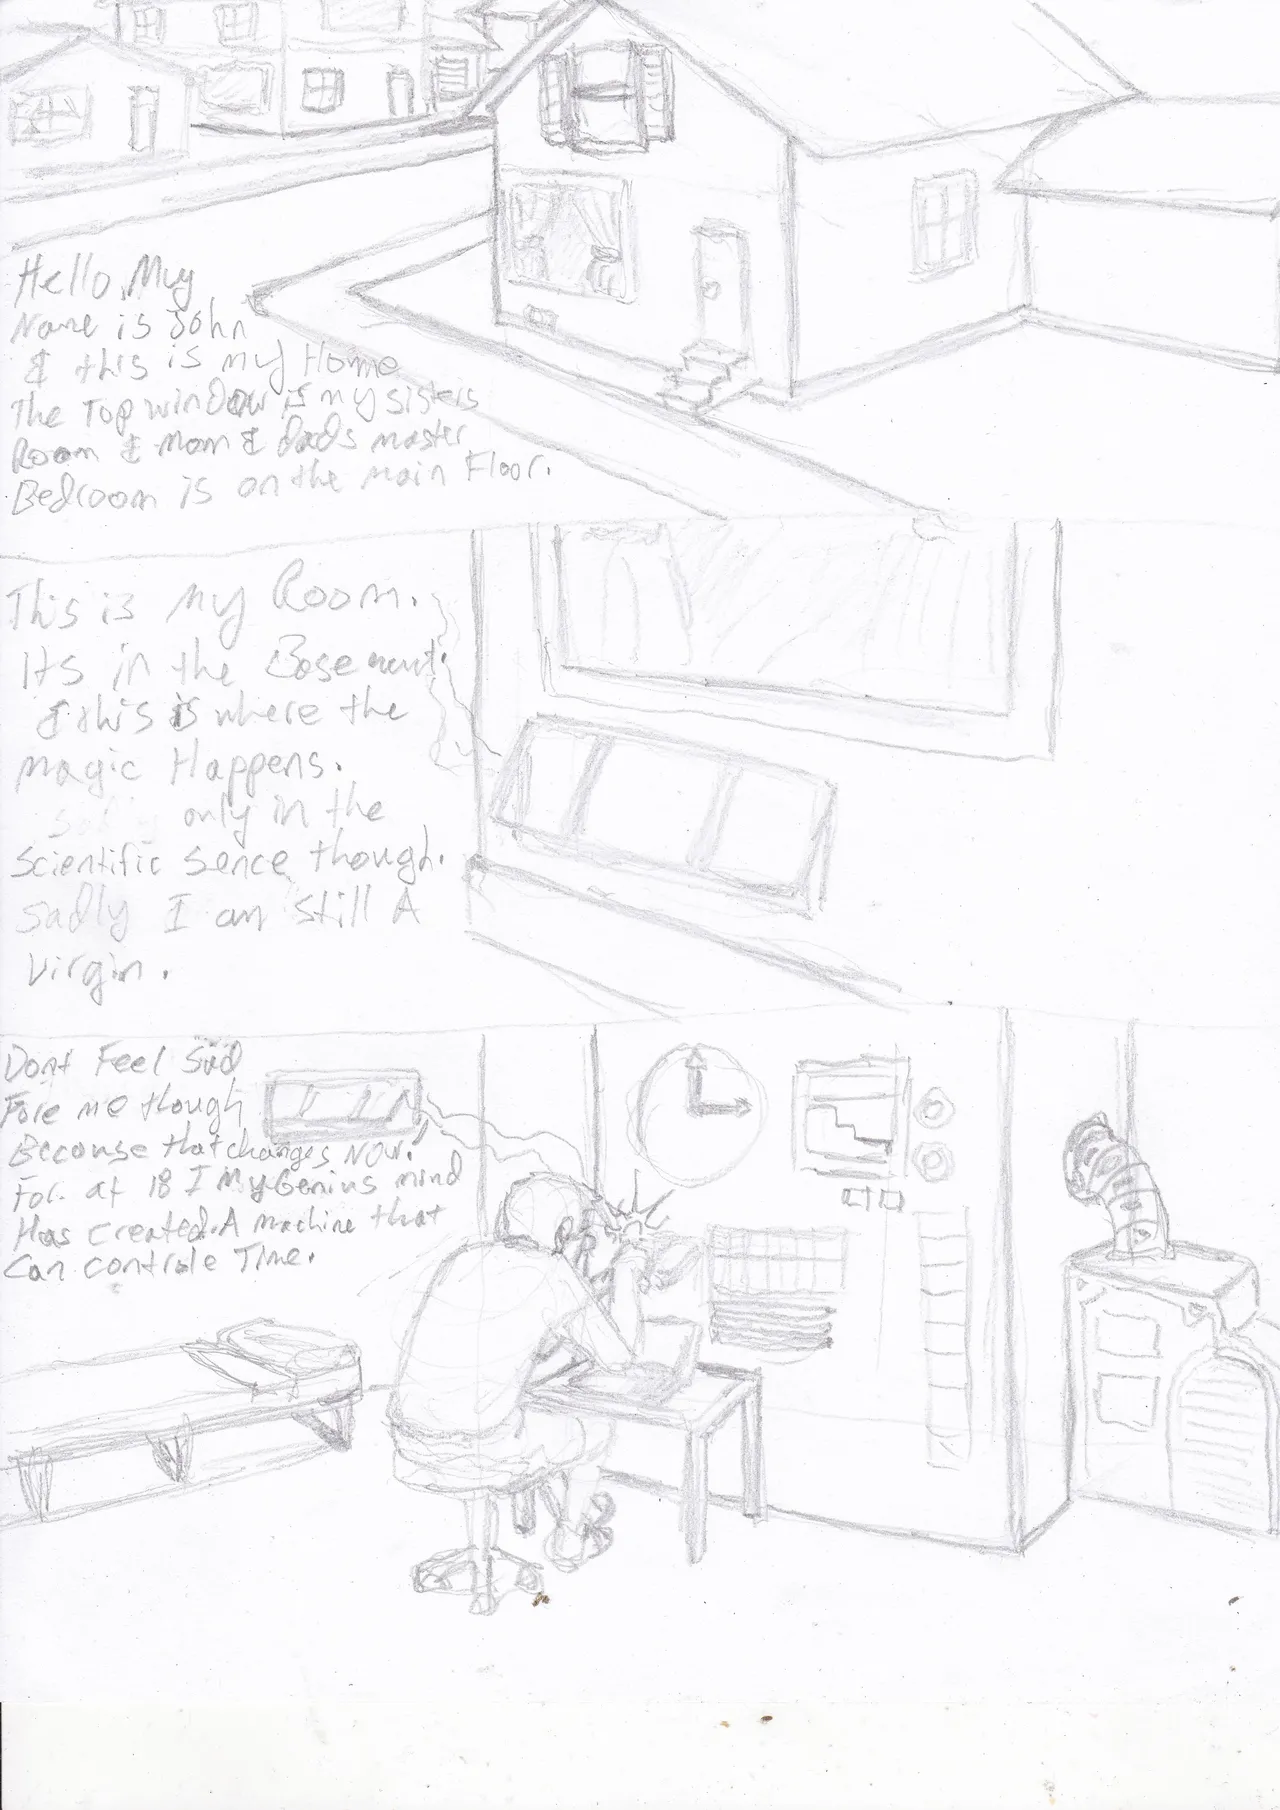 Hello, Muy
Name is John
& this is my Home
The Top window is my sisters
Room & Mom & Dads master
Bedroom is on the main Floor.
This is My Room.
Its in the Basement.
& this is where the
magic Happens.
only in the
Scientific Sence though.
Sadly I am still A
Virgin.
Dont Feel Sad
Fore me though
Because that changes Now!
For at 18 I My Genius mind
Has created A machine that
Can controle Time.